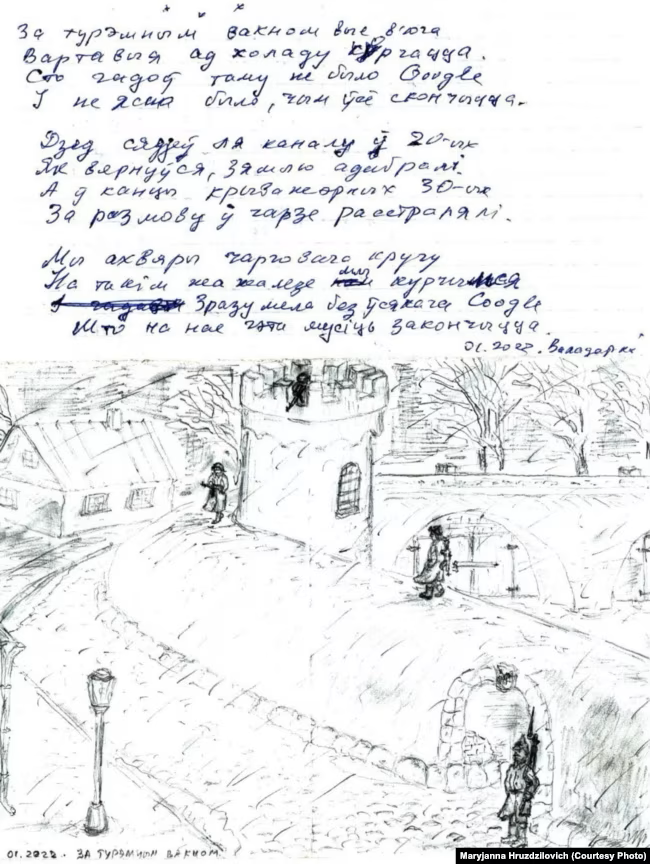 * * *
За турэмным вакном вые в'юга
Вартавыя ад холаду курчацца.
Сто гадоў таму не было Google
І не ясна было, чым ўсё скончыцца.
Дзед сядзеў ля каналу ў 20-ых
Як вярнуўся, зямлю адабралі.
А ў канцы крыважорных 30-ых
За размову ў чарзе расстралялі.
Мы ахвяры чарговага кругу
На такім жа жалезе мы курчимся
Зразумела без ўсякага Google
Што на нас гэта мусіць закончыцца.
01.2022. Валадарка
01.2022. ЗА ТУРЭМНЫМ ВАКНОМ.
Maryjanna Hruzdzilovich (Courtesy Photo)